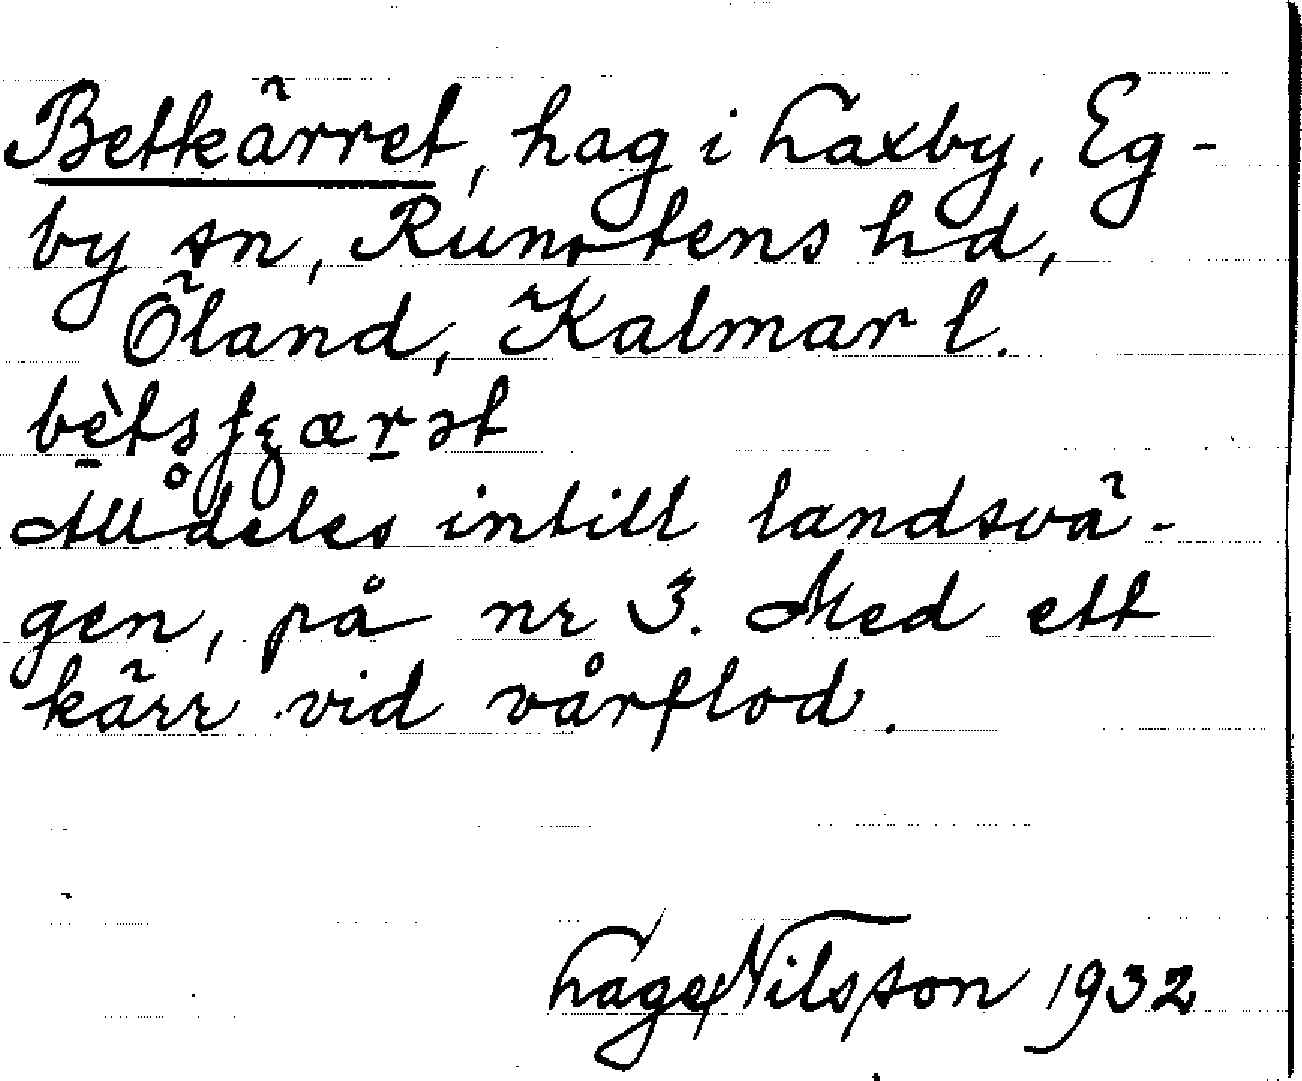 Betkärret, hag i Laxby, Eg-
by sn, Runstens hd,
Öland, Kalmar l.
Alldeles intill landsvä-
gen, på nr 3. Med ett
kärr vid vårflod.
Lage Nilsson 1932